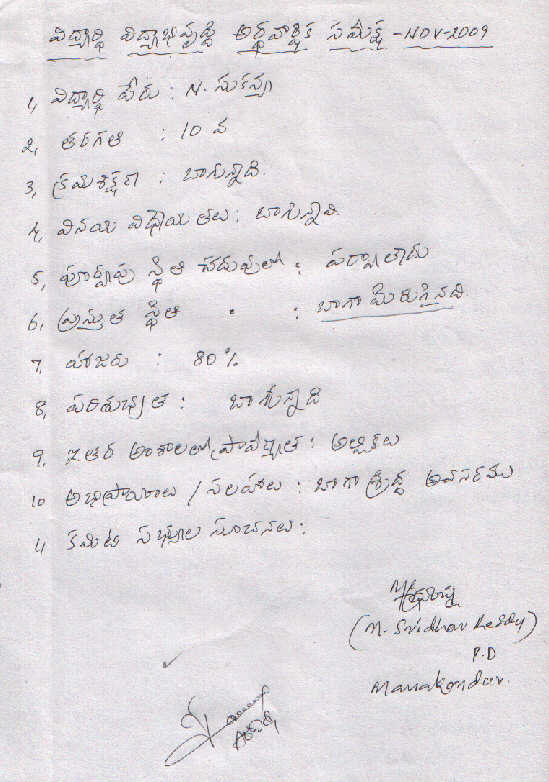 విద్యార్థి విద్యాభివృద్ధి అర్థవార్షిక సమీక్ష - NOV-2009
1, విద్యార్థి పేరు : N. సుకన్యా
2, తరగతి : 10 వ
3, క్రమశిక్షణ : బాగున్నది.
4, వినయ విధేయతలు : బాగున్నవి.
5, పూర్వపు స్థితి చదువులో : పర్వాలేదు
6, ప్రస్తుత స్థితి " : బాగా మెరుగైనది.
7, హాజరు : 80%
8, పరిశుభ్రత : బాగున్నది
9, ఇతర అంశాలలో ప్రావీణ్యత : అల్లికలు
10 అభిప్రాయాలు / సలహాలు : బాగా శ్రద్ధ అవసరము
11 కమిటి సభ్యుల సూచనలు :
(M. Sridhar Reddy)
P.D
Manakondur.